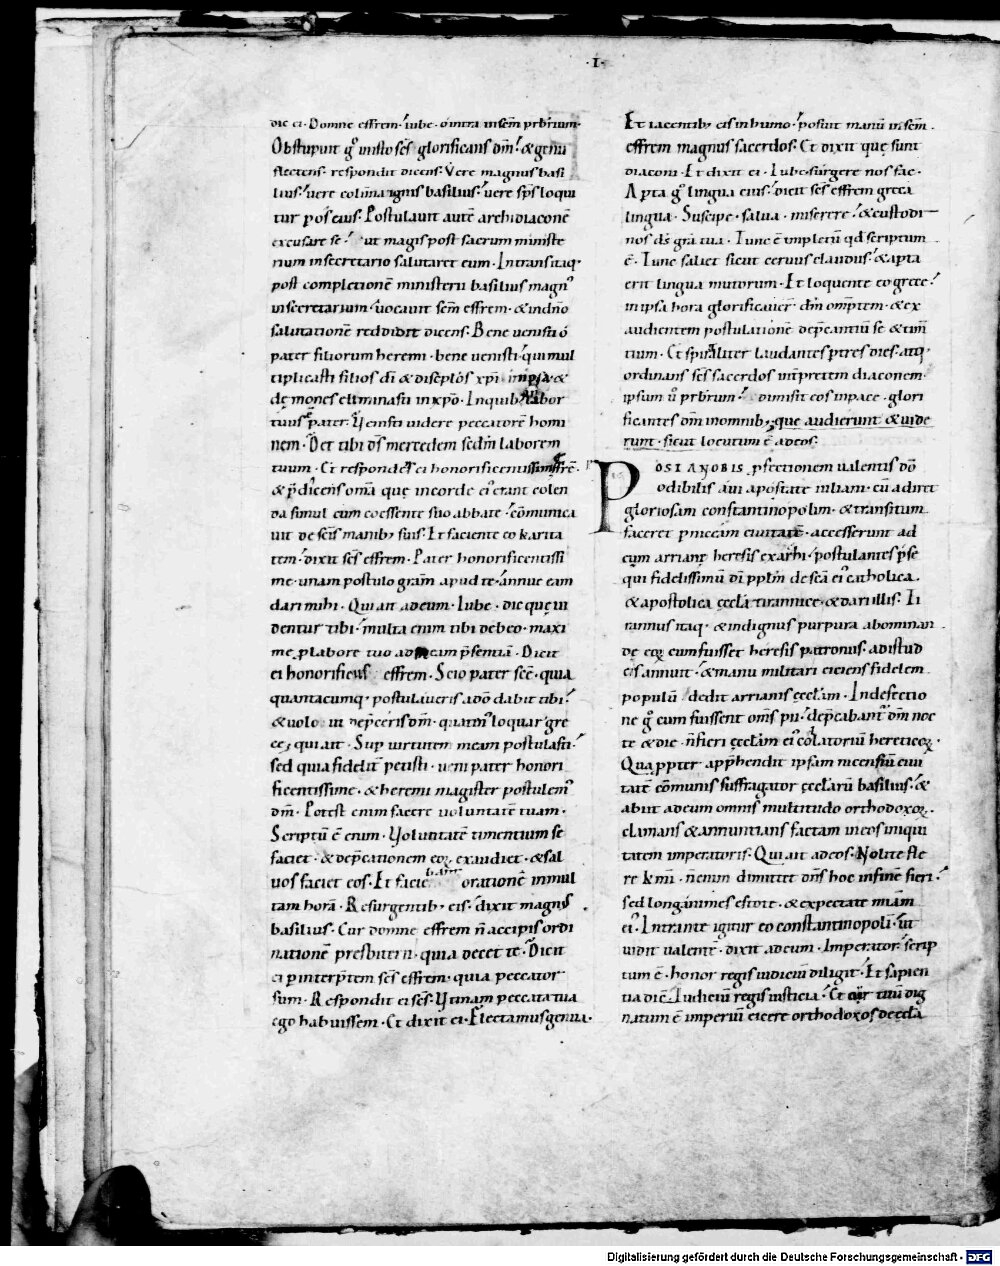 ·I·
dic ei · Domne effrem · iube · & intra in sēm prb̄rium ·
Obstupuit gͦ in isto sc̄s glorificans dm̄ · & genu
flectens · respondit dicens · Vere magnus basi
lius · uere colūna ignis basilius · uere sps̄ loqui
tur p os eius · Postulauit autē archidiaconē
excusare se · ut magis post sacrum ministe
rium in secretario salutaret eum · Intrans itaq·
post completionē ministerii basilius magn᾿
in secretarium · uocauit sēm effrem · &
salutationē reddidit dicens · Bene uenisti ó
pater filiorum heremi · bene uenisti · qui mul
tiplicasti filios dī & disc̄plos xp̄i &
dęmones eliminasti in xp̄o · labor
tuus pater · Venisti uidere peccatorē homi
nem · Det tibi dn̄s mercedem scdm̄ laborem
tuum · Et respondet ei honorificentissim
& p̄dicens omā quę in corde ei᾿ erant colen
da simul cum eo essente suo abbate · cōmunica
uit de scīs manib; suis · Et faciente eo karita
tem · dixit sc̄s effrem · Pater honorificentissi
me unam postulo gram̄ apud te · annue eam
dari mihi · Qui ait ad eum · Iube · dic quę ui
dentur tibi · multa enim tibi debeo · maxi
me p labore tuo ad meam p̄sentiā · Dicit
ei honorificus effrem · Scio pater scē · quia
quantacumq· postulaueris a dō dabit tibi ·
& uolo ut dep̄ceris dm̄ · quatin᾿ loquar gre
ce; qui ait · Sup uirtutem meam postulasti ·
sed quia fidelit̄ petisti · ueni pater honori
ficentissime · & heremi magister postulem᾿
dm̄ · Potest enim facere uoluntatē tuam ·
Scriptū ē enim · Voluntatē timentium se
faciet · & dep̄cationem eoꝝ exaudiet · & sal
uos faciet eos · Et orationē in mul
tam horā · Resurgentib; eis · dixit magn᾿
basilius · Cur domne effrem n̄ accipis ordi
nationē presbiterii · quia decet te · Dicit
ei p interp̄tem sc̄s effrem · quia peccator
sum · Respondit ei sc̄s · Vtinam peccata tua
ego habuissem · Et dixit ei · Flectamus genua ·
Et iacentib; eis in humo · posuit manū in sēm
effrem magnus sacerdos · Et dixit quę sunt
diaconi · Et dixit ei · Iube surgere nos fac ·
Apta gͦ lingua eius · dicit sc̄s effrem greca
lingua · Suscipe · salua · miserere · & custodi
nos ds̄ gra tua · Tunc ē impletū qd̄ scriptum
ē · Tunc saliet sicut ceruus claudus · & apta
erit lingua mutorum · Et loquente eo grece ·
in ipsa hora glorificauer̄ dm̄ omp̄tem · & ex
audientem postulationē dep̄cantiū se & tim̄
tium · Et spiritaliter laudantes p tres dies · atq·
ordinans sc̄s sacerdos int̄pretem diaconem
ipsum ū prb̄rium · dimisit eos in pace · glori
ficantes dm̄ in omnib; que audierunt & uide
runt · sicut locutum ē ad eos ·
POSTA NOBIS pfectionem ualentis dō
odibilis aui apostate iuliani · cū adiret
gloriosam constantinopolim · & transitum
faceret p nicęam ciuitatē · accesserunt ad
eum arrianę heresis exarhi · postulantes p̄se
qui fidelissimū dī pp̄lm de scā ei᾿ catholica
& apostolica ęccla tirannice · & dari illis · Ti
rannus itaq· & indignus purpura abominan
de eoꝝ cum fuisset heresis patronus · ad istud
eis annuit · & manu militari eiciens fidelem
populū dedit arrianis ęccl̄am · In defectio
ne gͦ cum fuissent oms̄ pii · dep̄cabant᾿ dm̄ noc
te & die · n̄ fieri ęccl̄am ei᾿ colatoriū hereticoꝝ ·
Qua ppter app̄hendit ipsam nicensiū ciui
tatē cōmunis suffragator ęccl̄arū basilius · &
abiit ad eum omnis multitudo orthodoxoꝝ ·
clamans & annuntians factam in eos iniqui
tatem imperatoris · Qui ait ad eos · Nolite fle
re kmi · n̄ enim dimittet dn̄s hoc in finē fieri ·
sed longanimes estote · & expectate mīam
ei᾿ · Intrante igitur eo constantinopolī · ut
uidit ualentē · dixit ad eum · Imperator scrip
tum ē · honor regis iudiciū diligit · Et sapien
tia dic̄ · Iudiciū regis iusticia · Et cur tuū dig
natum ē imperiū eicere orthodoxos de ęccl̄a
Digitalisierung gefördert durch die Deutsche Forschungsgemeinschaft - DFG